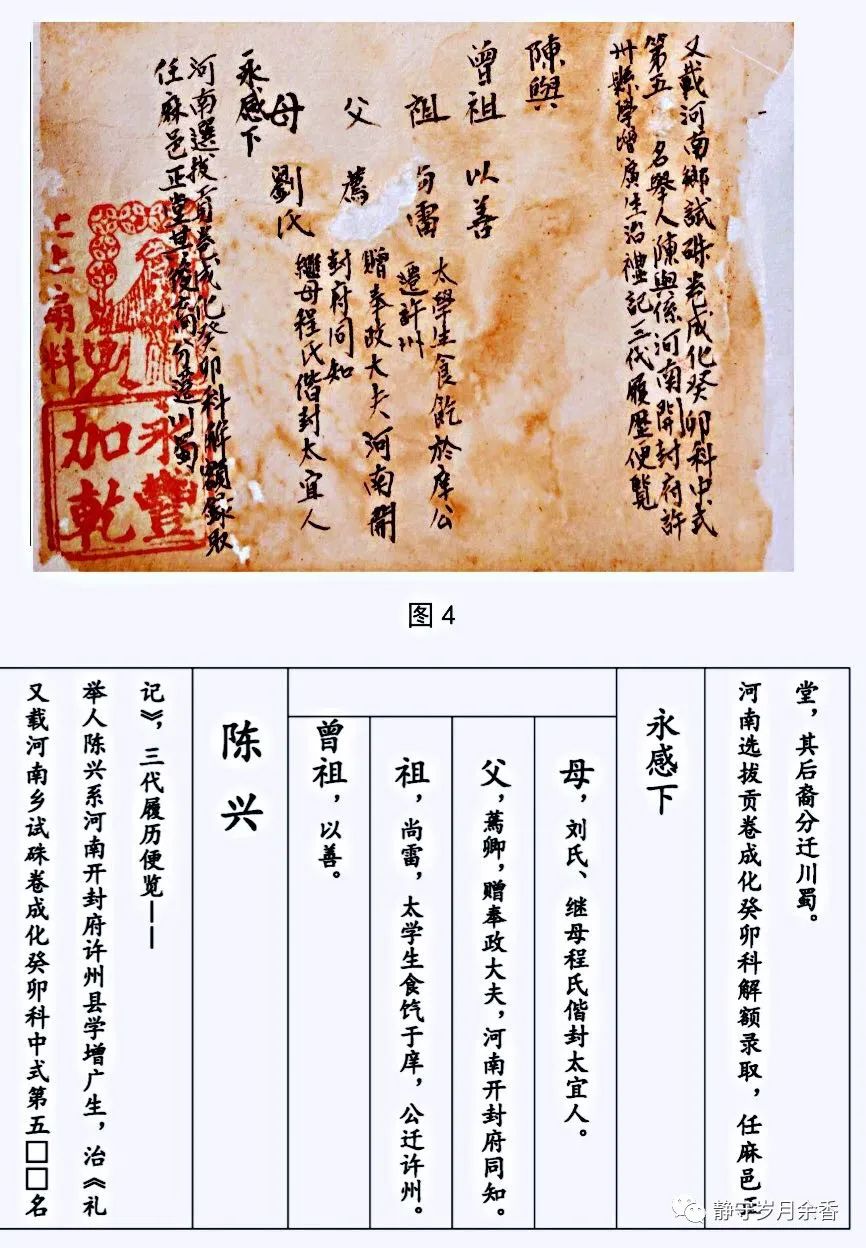 又載河南鄉試硃卷成化癸卯科中式
第五 名舉人陳與係河南開封府許
州縣學增廣生治禮記三代履歷便覽
陳與
曾祖 以善
祖 尚雷 太學生食餼於庠公
遷許州
父 薦 贈奉政大夫河南開
封府同知
母 劉氏 繼母程氏偕封太宜人
永感下
河南選拔貢卷成化癸卯科解額錄取
任麻邑正堂其後裔分遷川蜀
永豐
加乾
图 4
又载河南乡试硃卷成化癸卯科中式第五□□名
举人陈兴系河南开封府许州县学增广生，治《礼
记》，三代履历便览——
陈兴
曾祖，以善。
祖，尚雷，太学生食饩于庠，公迁许州。
父，蔫卿，赠奉政大夫，河南开封府同知。
母，刘氏、继母程氏偕封太宜人。
永感下
河南选拔贡卷成化癸卯科解额录取，任麻邑正
堂，其后裔分迁川蜀。
静守岁月余香